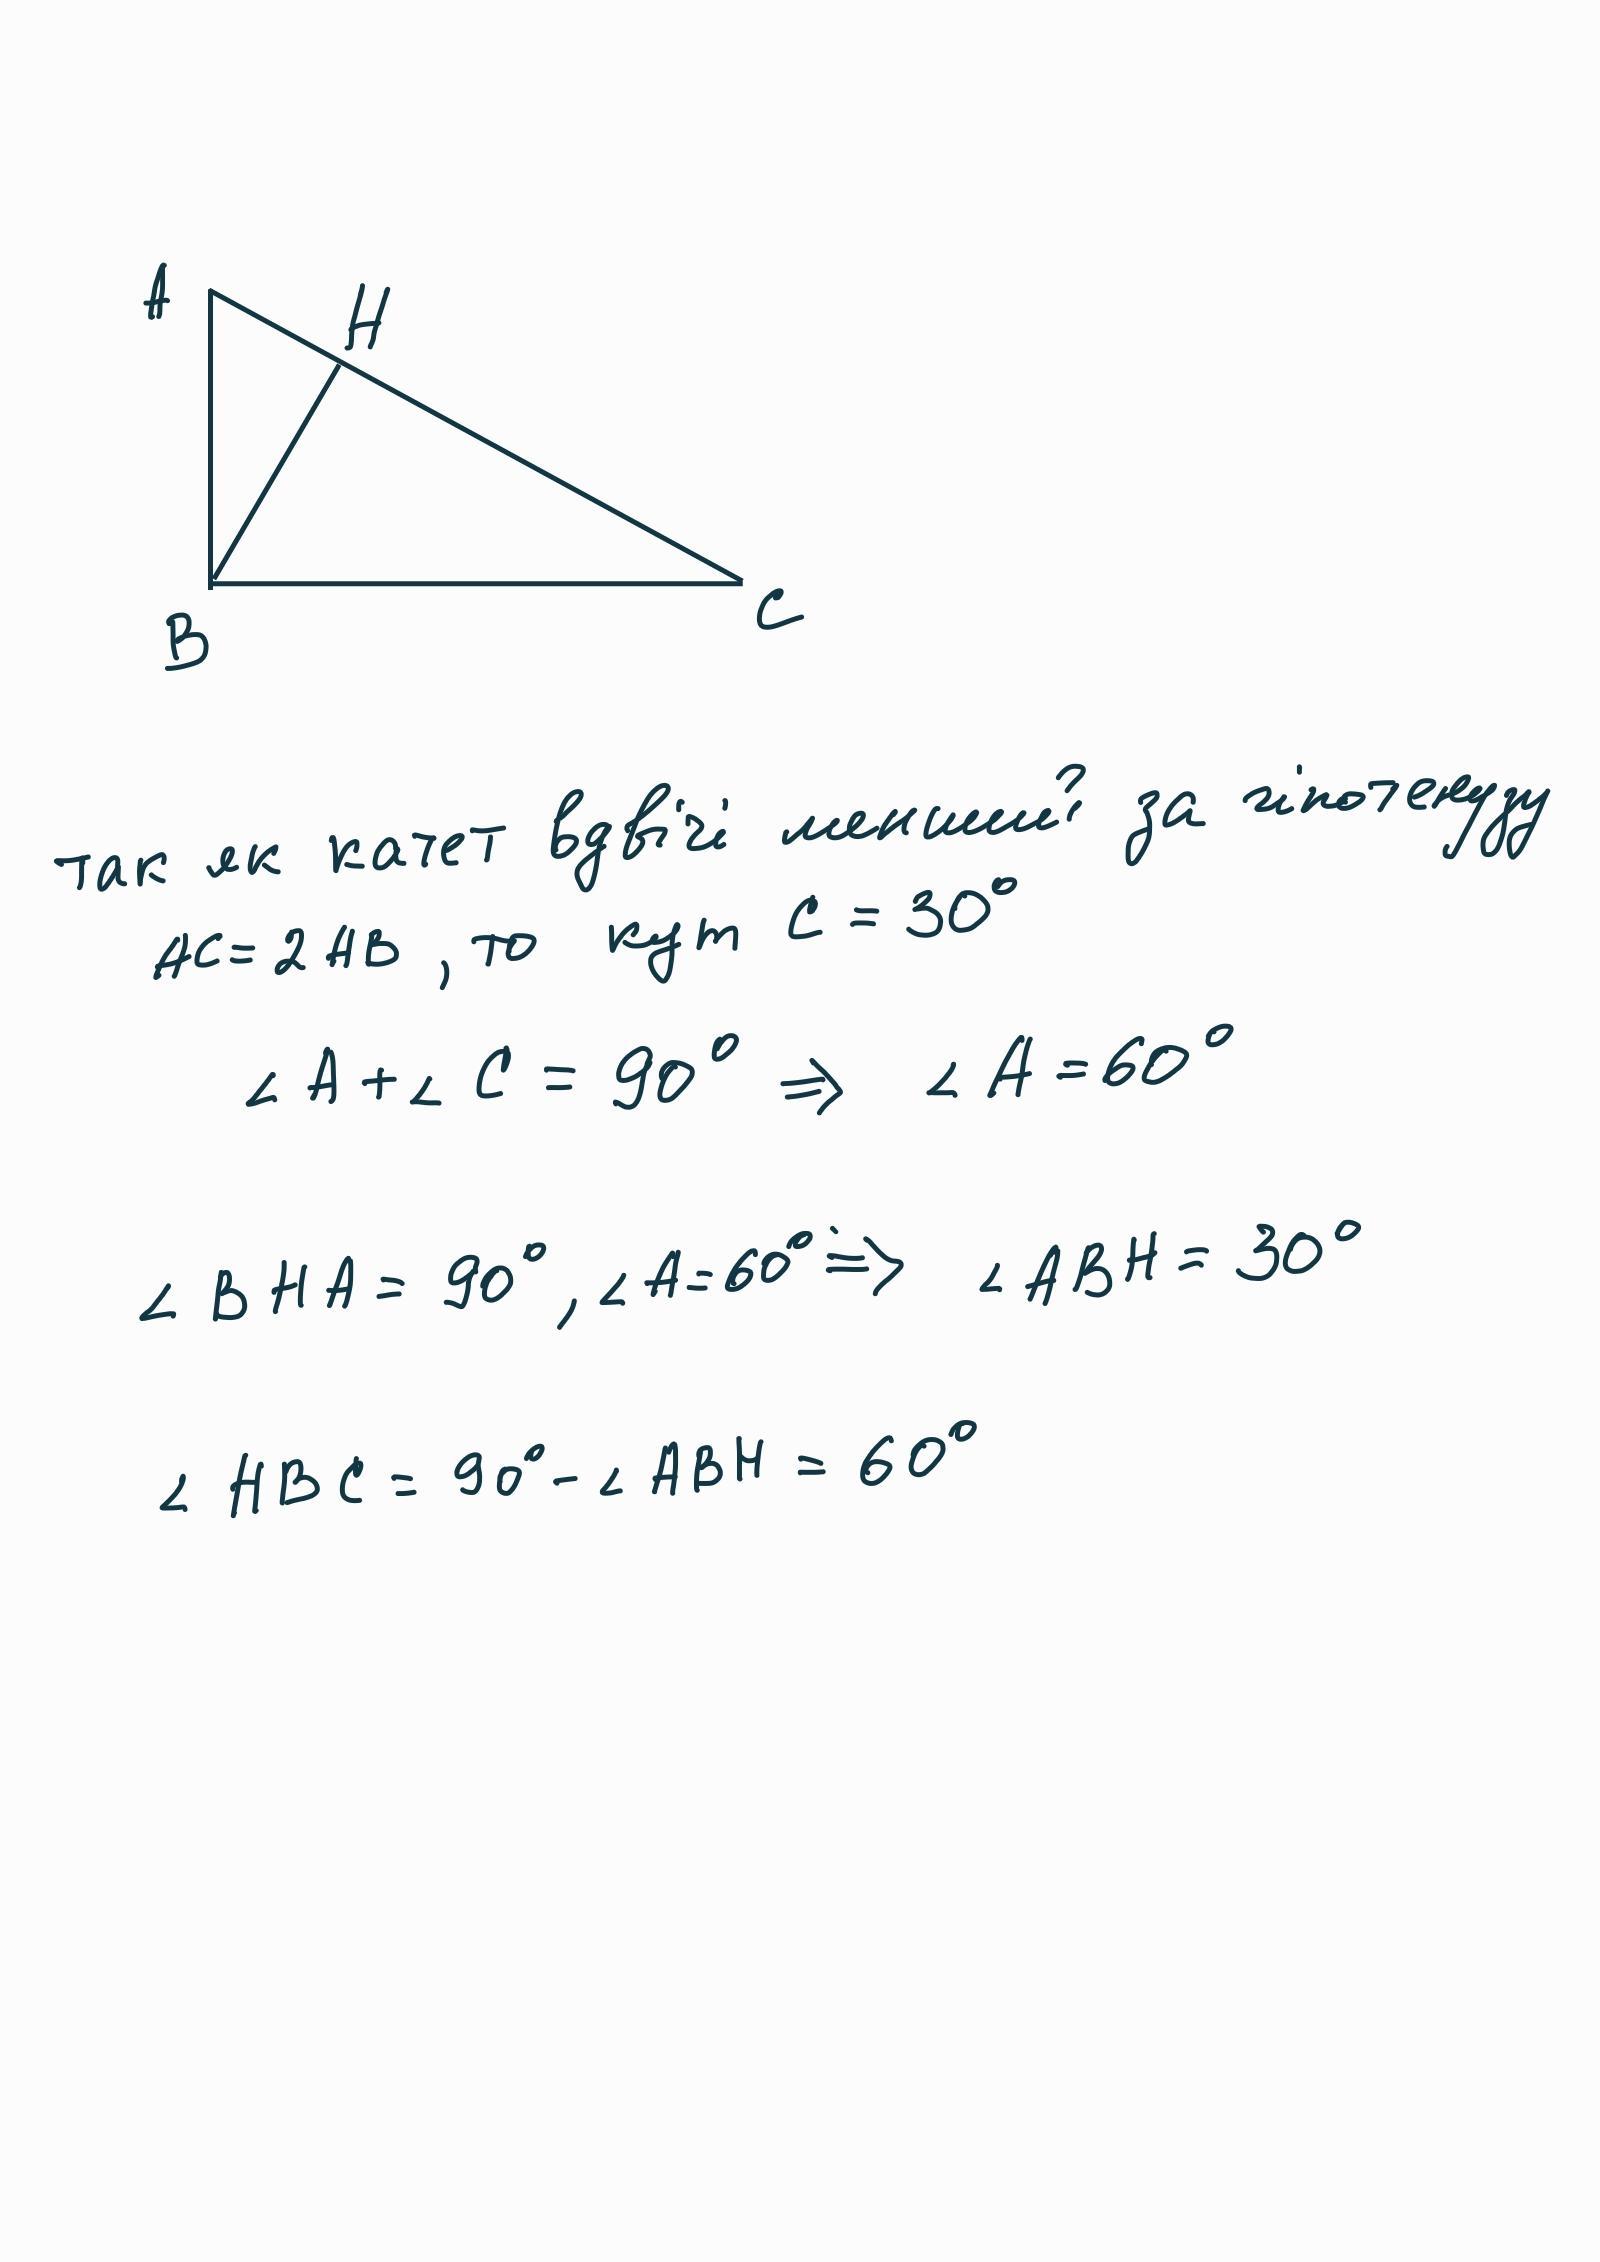 A
H
B
C
так як катет вдвічі менший за гіпотенузу
AC = 2AB, то кут C = 30°
∠A + ∠C = 90° ⇒ ∠A = 60°
∠BHA = 90°, ∠A = 60° ⇒ ∠ABH = 30°
∠HBC = 90° - ∠ABH = 60°